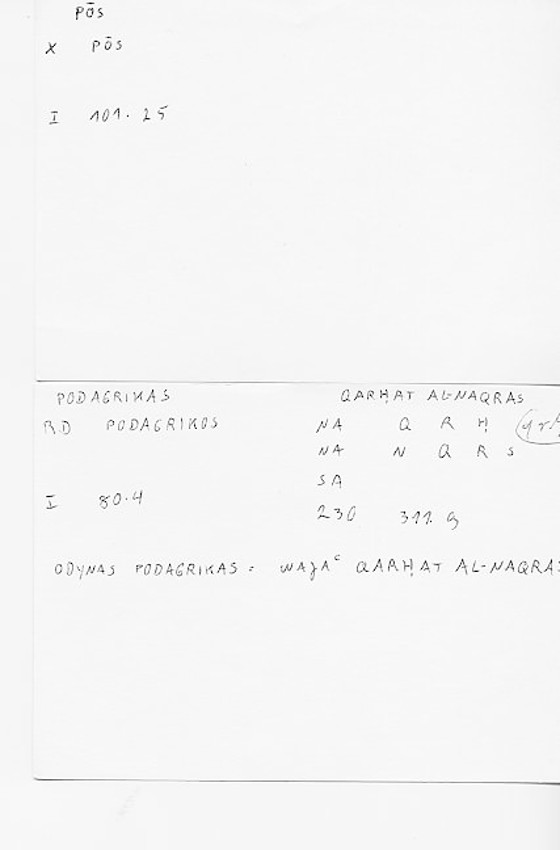 PŌS
X PŌS
I 101.25
PODAGRIKAS QARḤAT AL-NAQRAS
RD PODAGRIKOS NA Q R Ḥ
NA N Q R S
SA
I 80.4
230 311.9
ODYNAS PODAGRIKAS = WAJAᶜ QARḤAT AL-NAQRAS